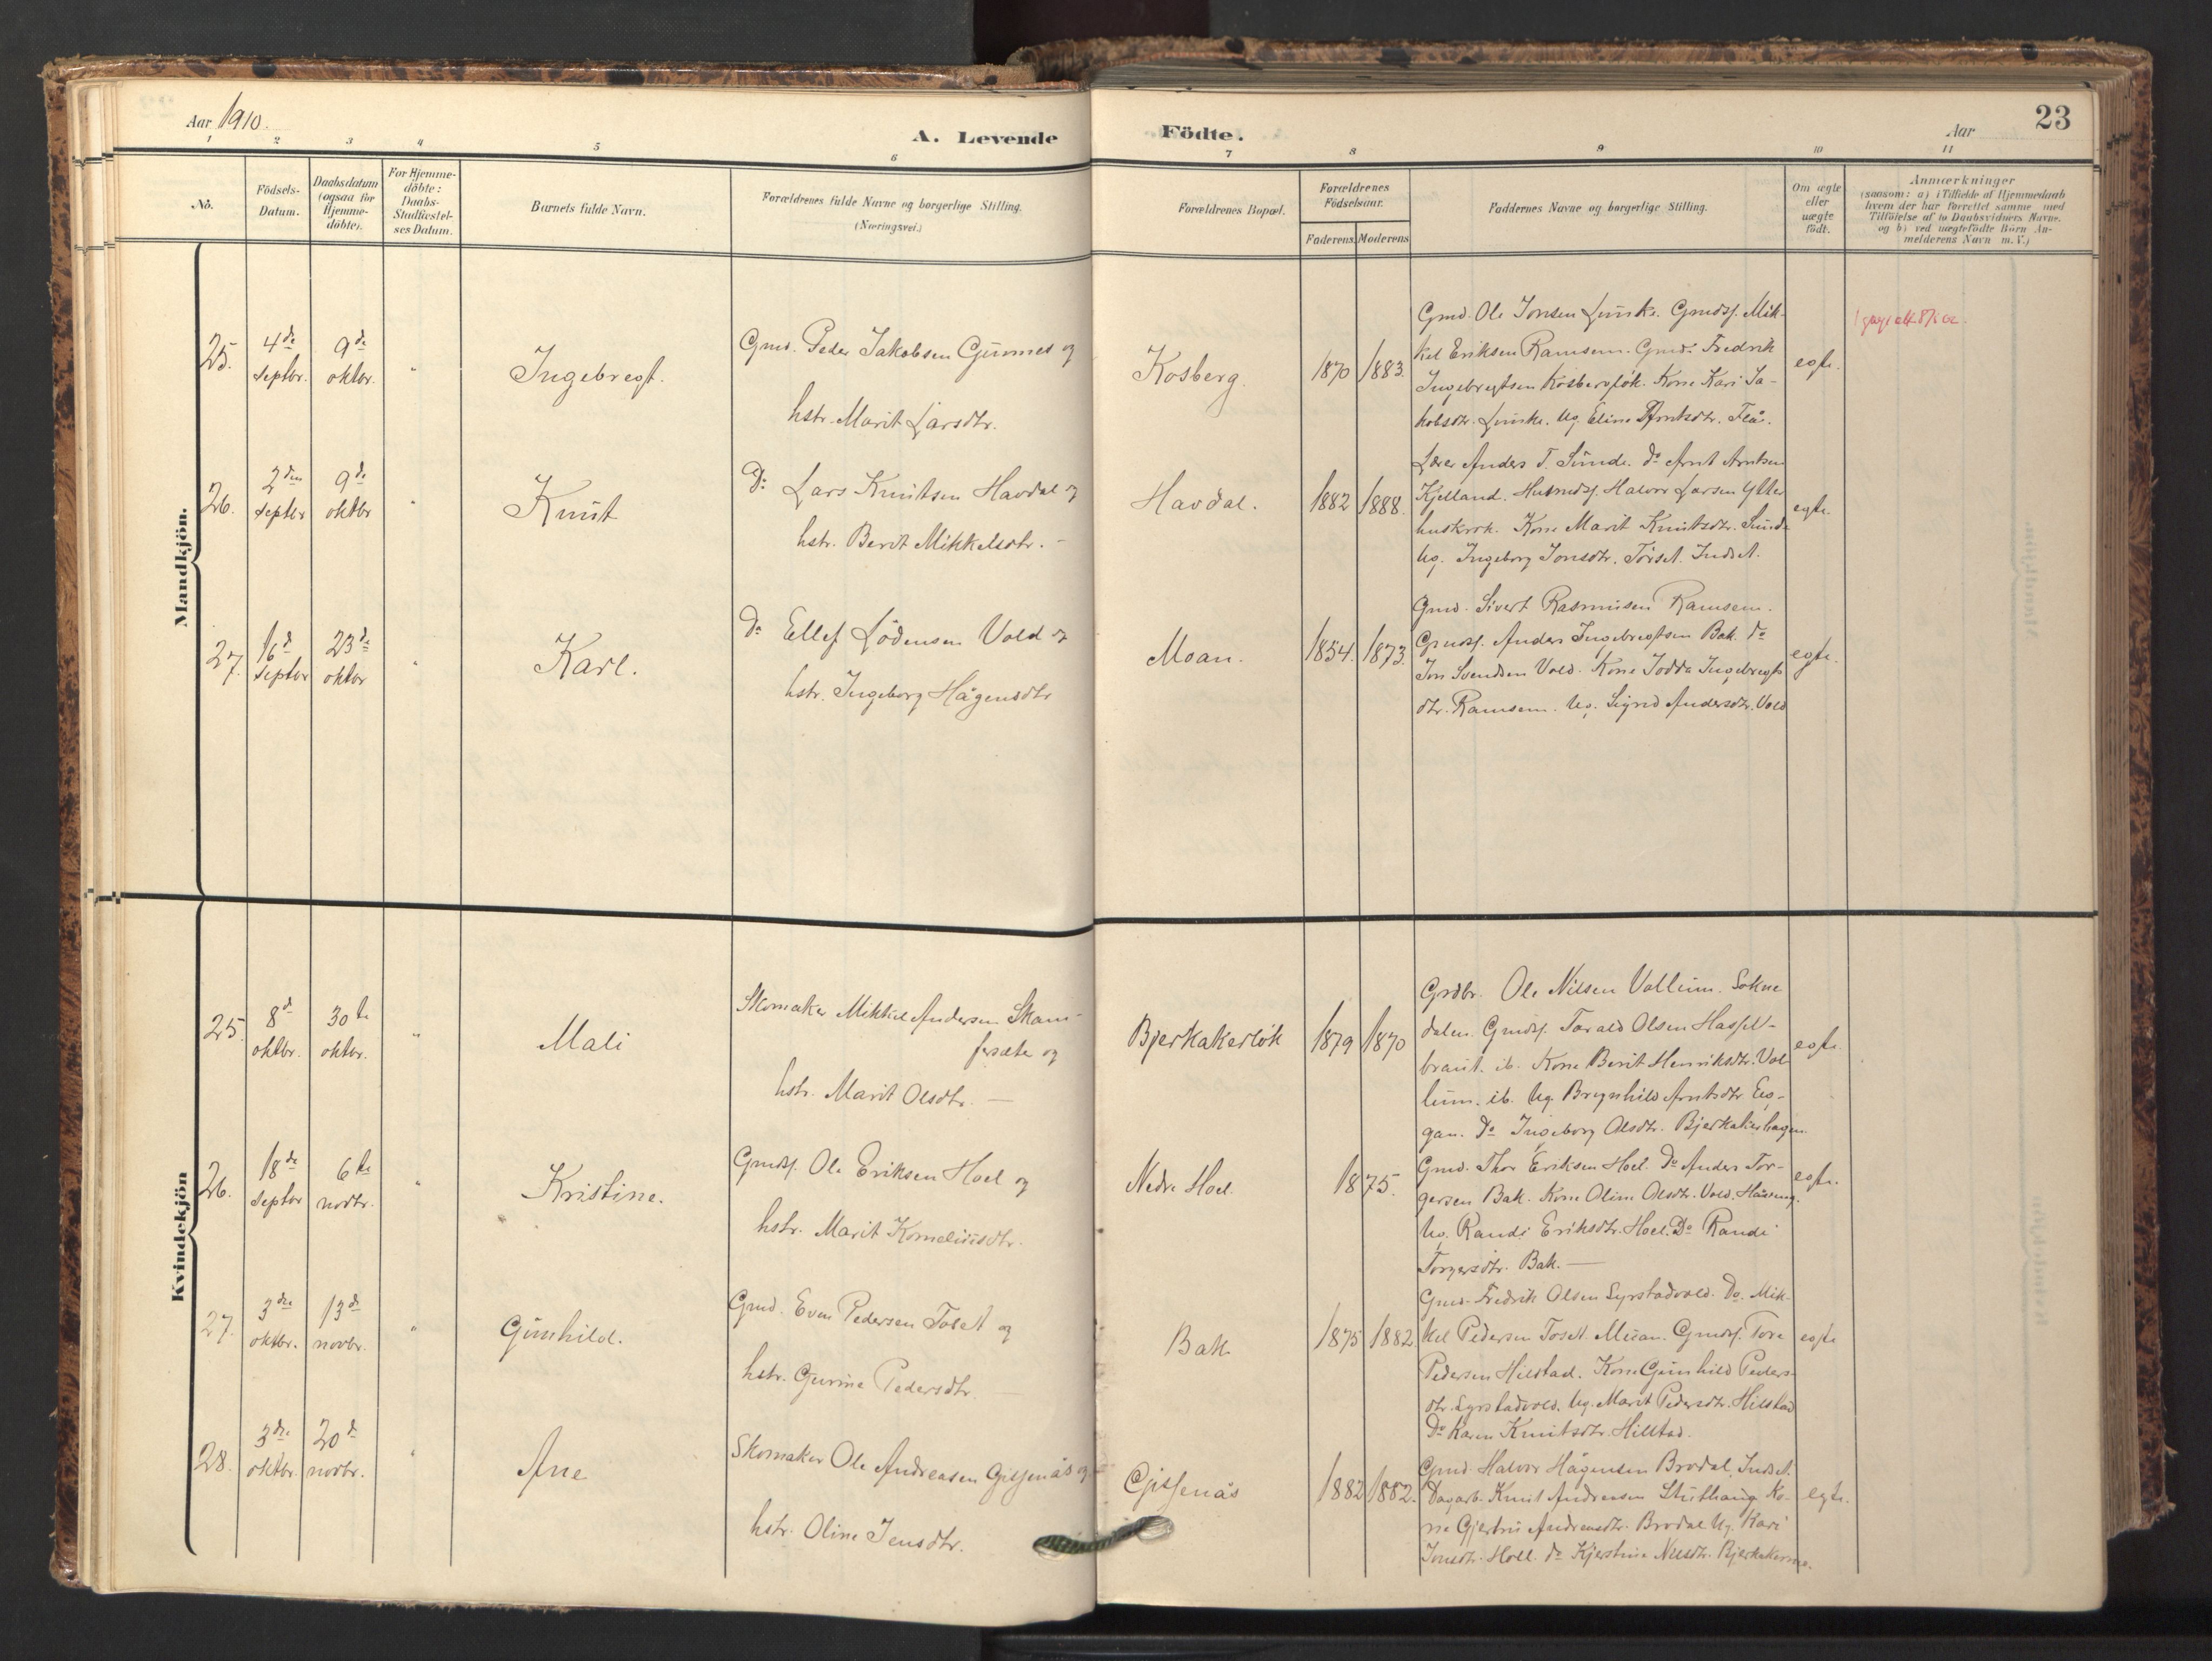 Aar 1910.
A. Levende Födte.
Aar
23
1 2 3 4 5 6 7 8 9 10 11
No.
Födsels-
Datum.
Daabsdatum
(ogsaa for
Hjemme-
döbte).
For Hjemme-
döbte:
Daabs-
Stadfæstel-
ses Datum.
Barnets fulde Navn.
Forældrenes fulde Navne og borgerlige Stilling.
(Næringsvei.)
Forældrenes Bopæl.
Forældrenes
Födselsaar.
Faderens. Moderens
Faddernes Navne og borgerlige Stilling.
Om ægte
eller
uægte
født.
Anmærkninger
(saasom: a) i Tilfælde af Hjemmedaab
hvem der har forrettet samme med
Tilföielse af to Daabsvidners Navne.
og b) ved uægtefödte Börn An-
melderens Navn m. V.)
Mandkjön.
25.
4de
Septbr.
9de
oktbr.
"
Ingebregt.
Gmd. Peder Jakobsen Gunnes og
hstr. Marit Larsdtr.
Kosberg.
1870 1883.
Gmd. Ole Jonsen Lunke. Gmdsf. Mik-
kel Eriksen Ramsem. Gmd. Fredrik
Ingebregtsen Kosbergløk. Kone Kari Ja-
kobsdtr. Lunke. Ug. Eline Arntsdtr. Flå.
egte.
26.
2den
Septbr
9de
oktbr
"
Knut
Do Lars Knutsen Havdal og
hstr. Berit Mikkelsdtr. -
Havdal.
1882 1888.
Lærer Anders T. Sunde. do Arnt Arntsen
Kjelland. Husmdsf. Halvor Larsen Ytter
huskrok. Kone Marit Knutsdtr. Sunde
Ug. Ingeborg Jonsdtr. Tørset. Indset.
egte.
27.
16d
Septbr
23de
oktbr
"
Karl.
Do Ellef Lødensen Vold og
hstr. Ingeborg Hågensdtr
Moan.
1854. 1873.
Gmd. Sivert Rasmusen Ramsem.
Gmdsf. Anders Ingebregtsen Bak. do
Jon Svendsen Vold. Kone Jodda Ingebregts
dtr. Ramsem. Ug. Sigrid Andersdtr. Vold
egte.
Kvindekjön
25.
8d
oktbr.
30te
oktbr.
"
Mali
Skomaker Mikkel Andersen Skam-
fersæte og
hstr. Marit Olsdtr. -
Bjerkakerløk
1879 1870
Grdbr. Ole Nilsen Vollum. Sokne
dalen. Gmdsf. Torald Olsen Hassel-
braut. ib. Kone Berit Henriksdtr. Vol-
lum. ib. Ug. Brynhild Arntsdtr.
gan. Do Ingeborg Olsdtr. Bjerkakerhagen.
egte.
26.
18de
Septbr
6te
novbr.
"
Kristine.
Gmdsf. Ole Eriksen Hoel og
hstr. Marit Korneliusdtr.
Nedre Hoel.
1875.
Gmd. Thor Eriksen Hoel. Do Anders Tor-
gersen Bak. Kone Oline Olsdtr. Vold.
Ug. Randi Eriksdtr. Hoel. Do Randi
Torgersdtr. Bak. -
egte.
27.
3die
oktbr.
13de
novbr.
"
Gunhild.
Gmd. Even Pedersen Toset og
hstr. Gurine Pedersdtr. -
Bak
1875 1882.
Gmd. Fredrik Olsen Syrstadvold. Do. Mik-
kel Pedersen Toset. Gmdsf. Tore
Pedersen Hilstad. Kone Gunhild Peders-
dtr. Syrstadvold. Ug. Marit Pedersdtr. Hilstad
Do Karen Knutsdtr. Hilstad.
egte
28.
3die
oktbr.
20de
novbr.
"
Ane
Skomaker Ole Andreasen Gisnås og
hstr. Oline Jensdtr.
Gisnås
1882 1882.
Gmd. Halvor Hågensen Brodal, Indset.
Dagarb. Knut Andreasen Stuthaug Ko-
ne Gjertru Andreasdtr. Brodal Ug. Kari
Jonsdtr. Holl. do Kjerstine Nilsdtr. Bjerkakermo.
egte.